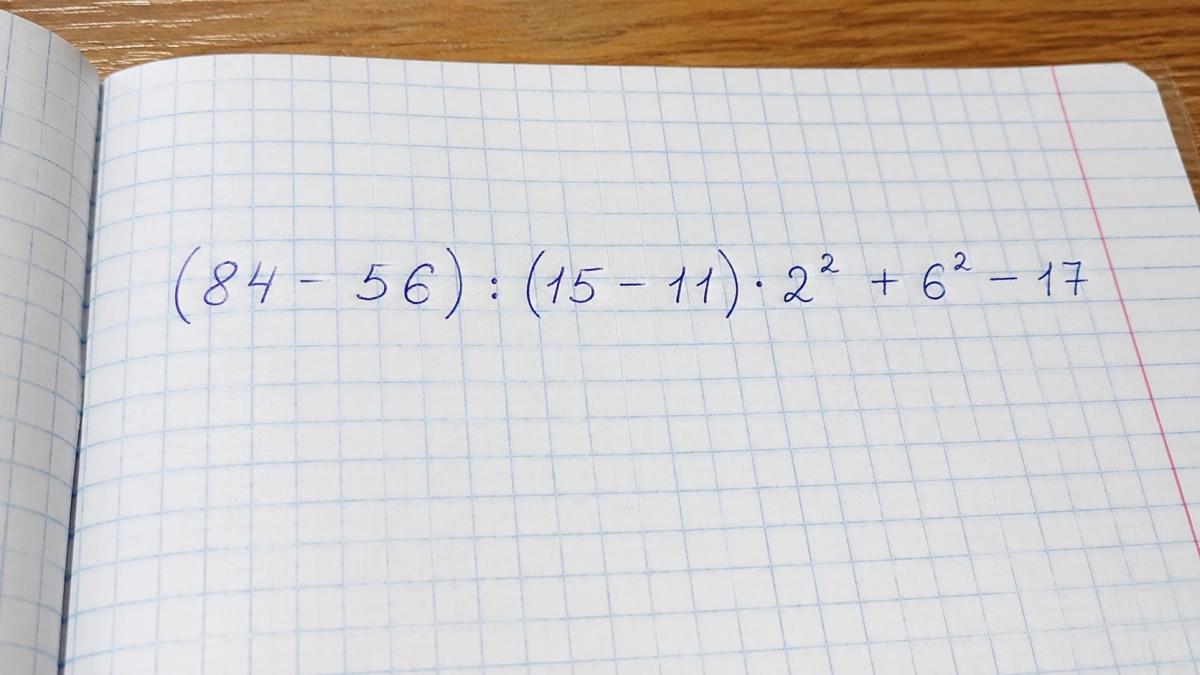 (84 - 56) : (15 - 11) · 2² + 6² - 17